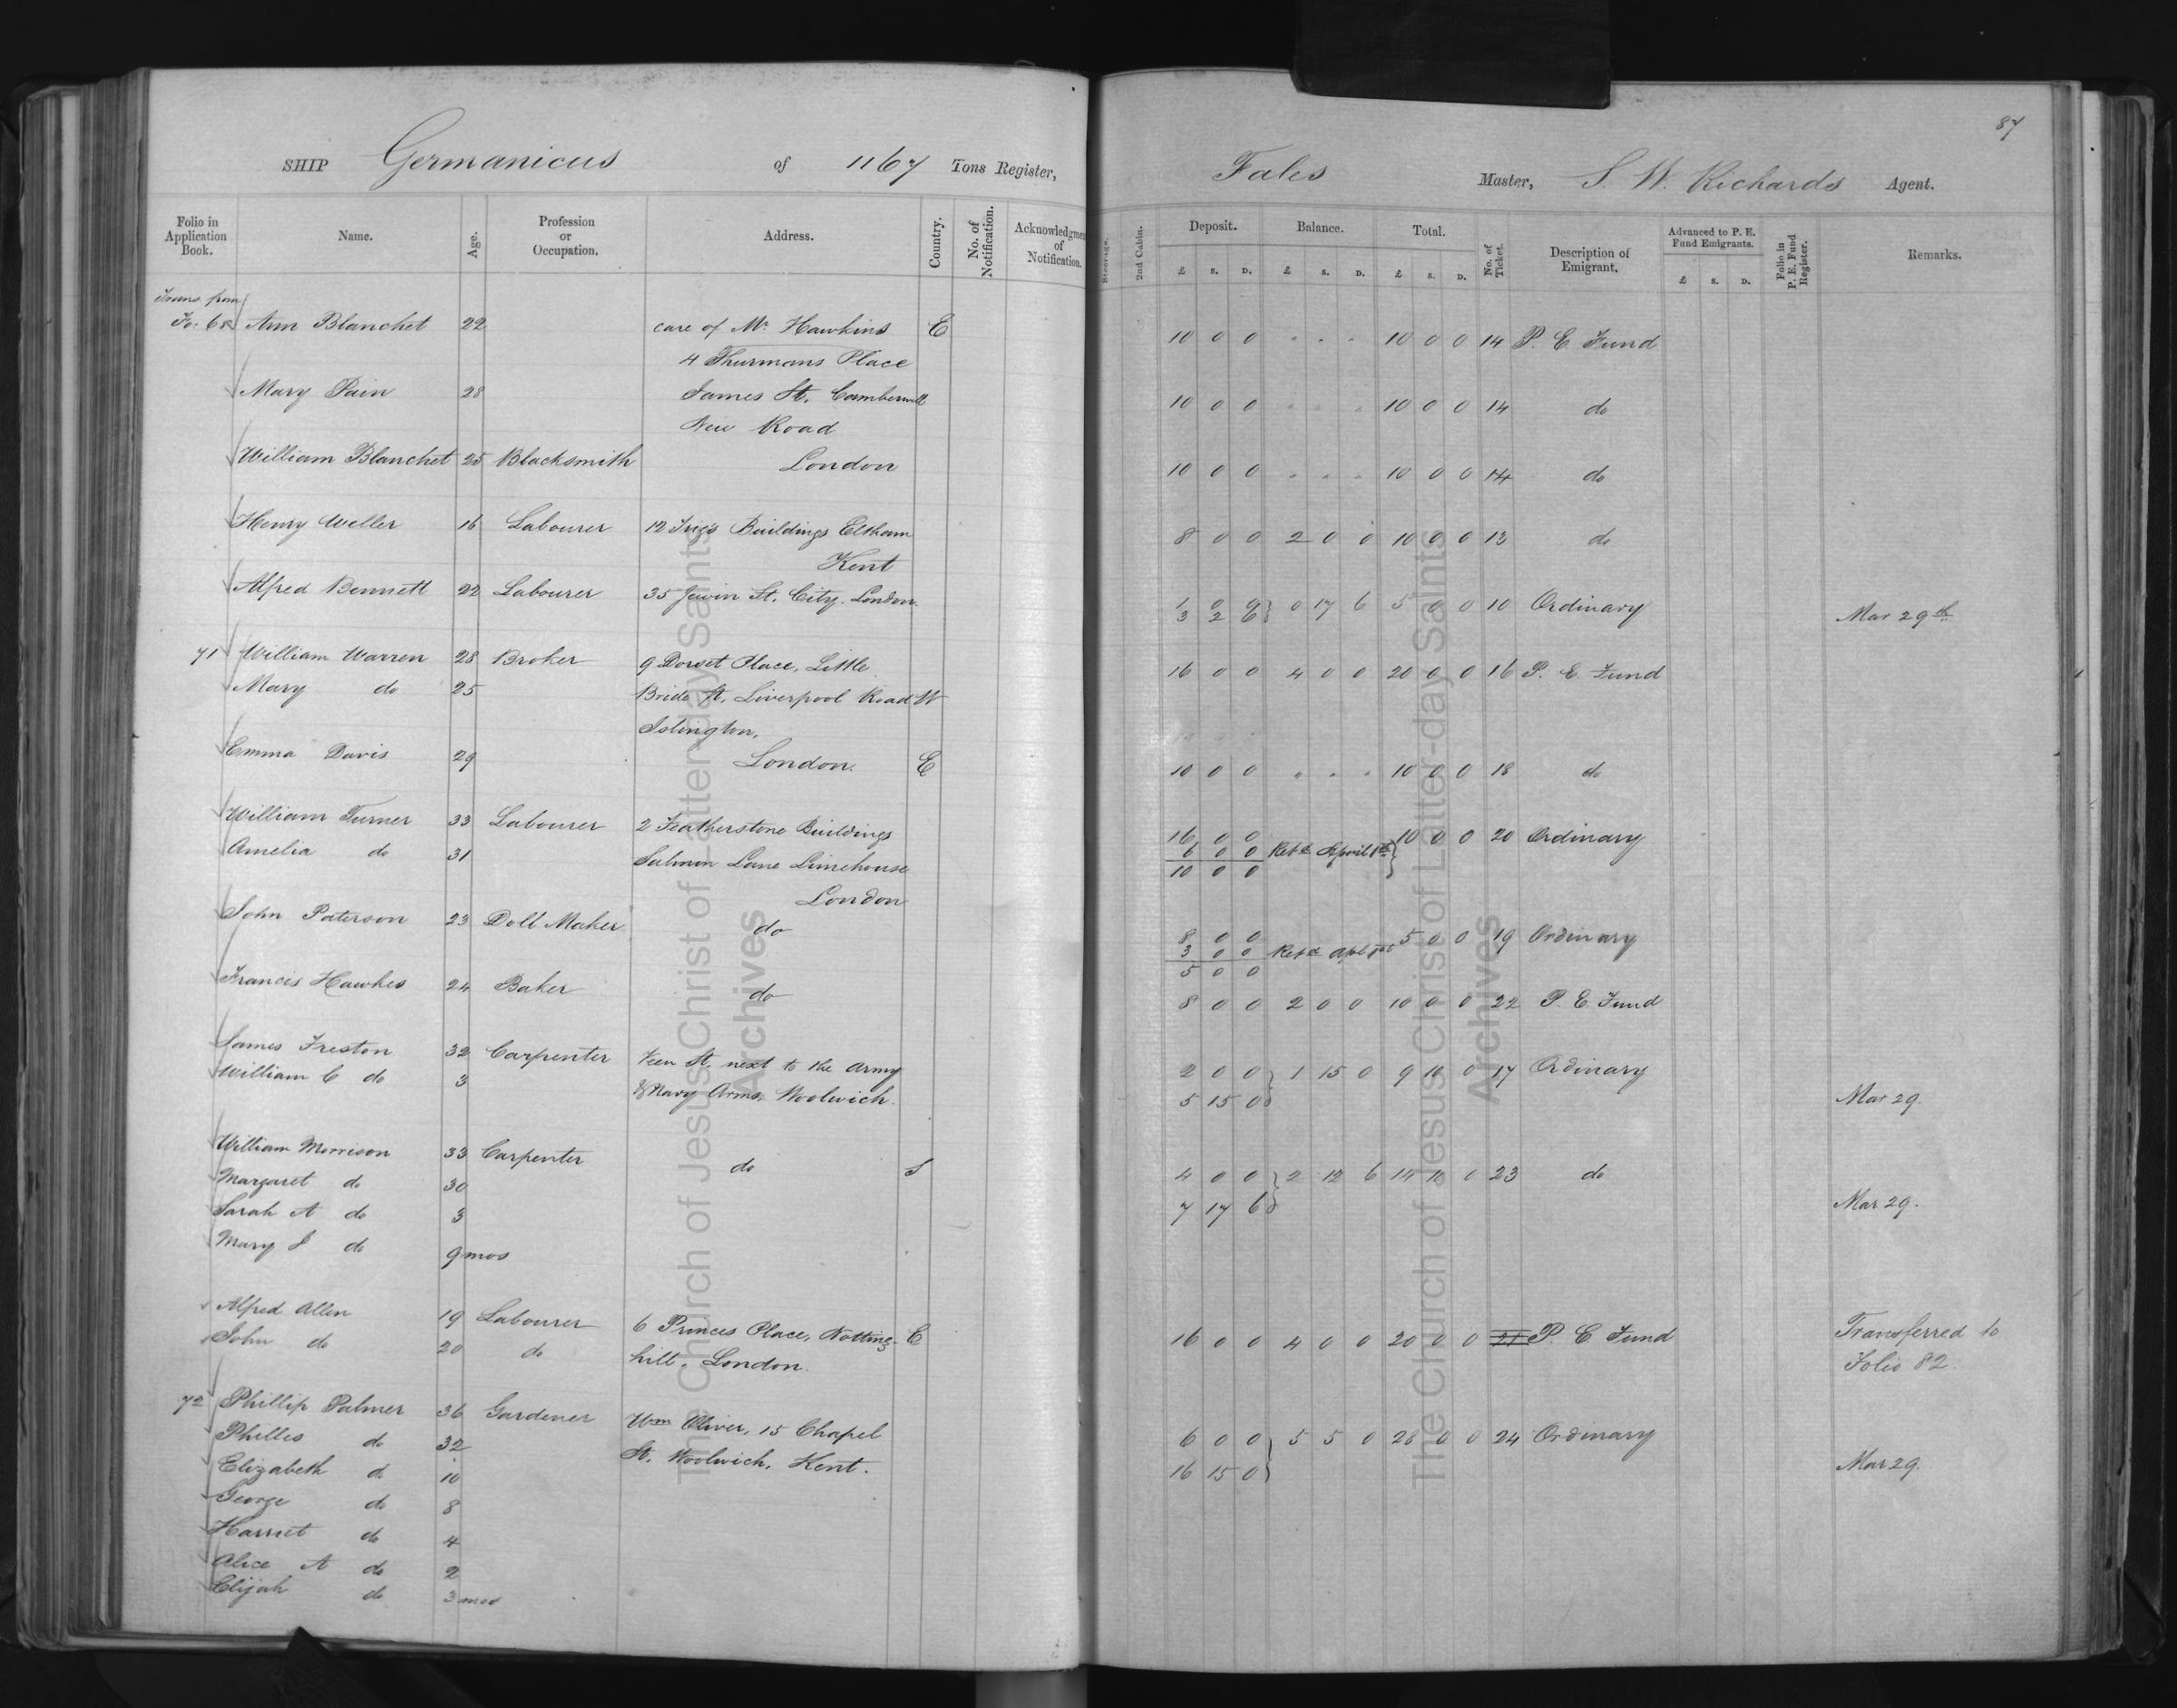 87
SHIP Germanicus of 1167 Tons Register, Fales Master, S. W. Richards Agent.
Folio in Application Book. Name. Age. Profession or Occupation. Address. Country. No. of Notification. Acknowledgment of Notification. Steerage. 2nd Cabin. Deposit. Balance. Total. No. of Ticket. Description of Emigrant. Advanced to P. E. Fund Emigrants. Folio in P. E. Fund Register. Remarks.
£ s. D. £ s. D. £ s. D. £ s. D.
Trans. from
Fo. 68 Ann Blanchet 22 care of Mr. Hawkins E 10 0 0 " " " 10 0 0 14 P. E. Fund
4 Thurmans Place
Mary Pain 28 James St. Camberwell 10 0 0 " " " 10 0 0 14 do
New Road
William Blanchet 25 Blacksmith London 10 0 0 " " " 10 0 0 14 do
Henry Weller 16 Labourer 12 Buildings Eltham 8 0 0 2 0 0 10 0 0 13 do
Kent
Alfred Bennett 22 Labourer 35 Jewin St. City. London. 1 0 0 0 17 6 5 0 0 10 Ordinary
3 2 6 Mar 29th
71 William Warren 28 Broker 9 Dorset Place, Little 16 0 0 4 0 0 20 0 0 16 P. E. Fund
Mary do 25 Bride St, Liverpool Road W
Islington,
Emma Davis 29 London. E 10 0 0 " " " 10 0 0 18 do
William Turner 33 Labourer 2 Featherstone Buildings 16 0 0 10 0 0 20 Ordinary
Amelia do 31 Salmon Lane Limehouse 6 0 0 Retd April 1st
10 0 0
London
John Paterson 23 Doll Maker do 8 0 0 5 0 0 19 Ordinary
3 0 0 Retd Apl 1st
5 0 0
Francis Hawkes 24 Baker do 8 0 0 2 0 0 10 0 0 22 P. E. Fund
James Freston 32 Carpenter St. next to the Army 2 0 0 1 15 0 9 10 0 17 Ordinary
William C do 3 & Navy Arms, Woolwich. 5 15 0 Mar 29.
William Morrison 33 Carpenter do S 4 0 0 2 12 6 14 10 0 23 do
Margaret do 30 7 17 6 Mar 29.
Sarah A do 3
Mary J do 9 mos
Alfred Allen 19 Labourer 6 Princes Place, Notting E 16 0 0 4 0 0 20 0 0 21 P. E. Fund Transferred to
John do 20 do hill. London. Folio 82.
72 Phillip Palmer 36 Gardener Wm Oliver, 15 Chapel 6 0 0 5 5 0 28 0 0 24 Ordinary
Philles do 32 St. Woolwich, Kent. 16 15 0 Mar 29.
Elizabeth do 10
George do 8
Harriet do 4
Alice A do 2
Elijah do 3 mos
The Church of Jesus Christ of Latter-day Saints
Archives
The Church of Jesus Christ of Latter-day Saints
Archives